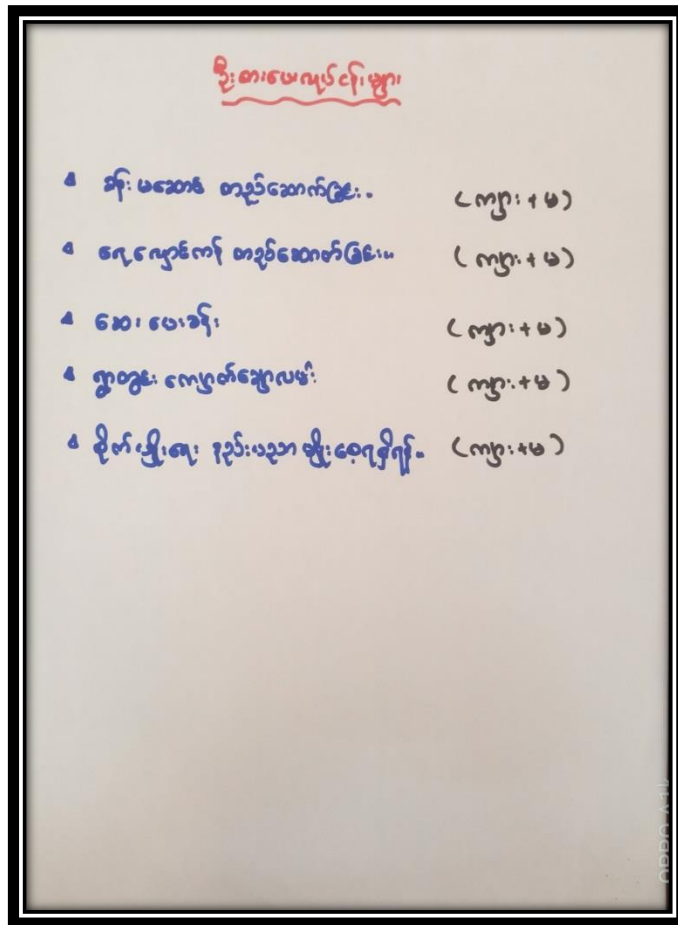 ဦးစားပေးလုပ်ငန်းများ
ခန်းမဆောင် တည်ဆောက်ခြင်း။ (ကျား+မ)
ရေလှောင်ကန် တည်ဆောက်ခြင်း။ (ကျား+မ)
ဆေးပေးခန်း (ကျား+မ)
ရွာတွင်း ကျောက်ချောလမ်း (ကျား+မ)
စိုက်ပျိုးရေး နည်းပညာ မျှဝေရရှိရန်။ (ကျား+မ)
OPPO A11